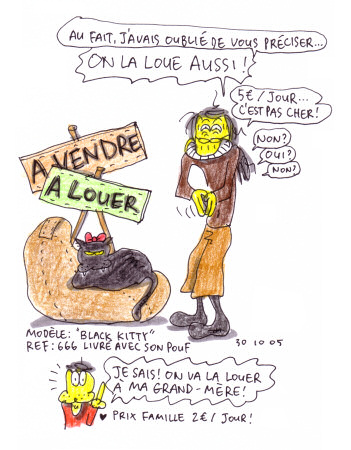 AU FAIT, J'AVAIS OUBLIÉ DE VOUS PRÉCISER...
ON LA LOUE AUSSI!
5€/JOUR...
C'EST PAS CHER!
NON?
OUI?
NON?
A VENDRE
A LOUER
MODÈLE: "BLACK KITTY"
REF: 666 LIVRÉ AVEC SON POUF
30 10 05
JE SAIS! ON VA LA LOUER
À MA GRAND-MÈRE!
♥ PRIX FAMILLE 2€/JOUR!